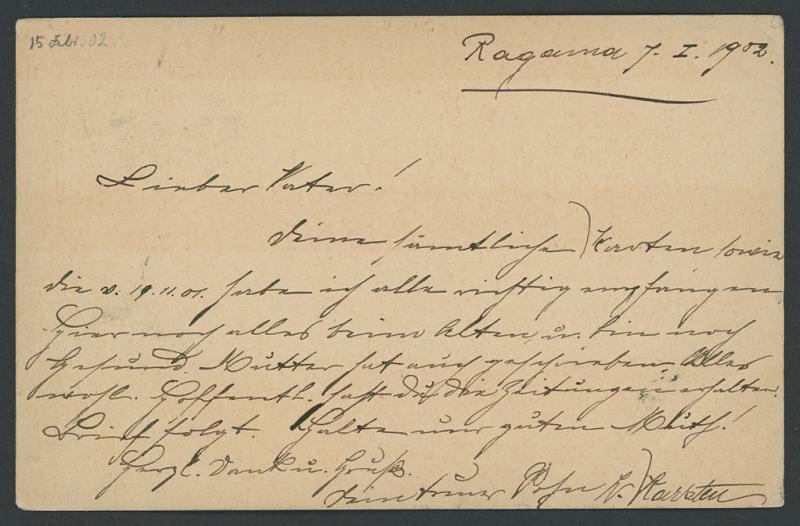 15 Febr. 02.
Ragama 7. I. 1902.
Lieber Vater!
Deine sämtliche Karten sowie
die v. 19.11.01. habe ich alle richtig empfangen
Hier noch alles beim Alten, u. bin noch
Gesund. Mutter hat auch geschrieben. Alles
wohl. Hoffentl. hast du die Zeitungen erhalten.
Brief folgt. Halte nur guten Muth!
Herzl. Dank u. Gruß.
dein treuer Sohn Karsten